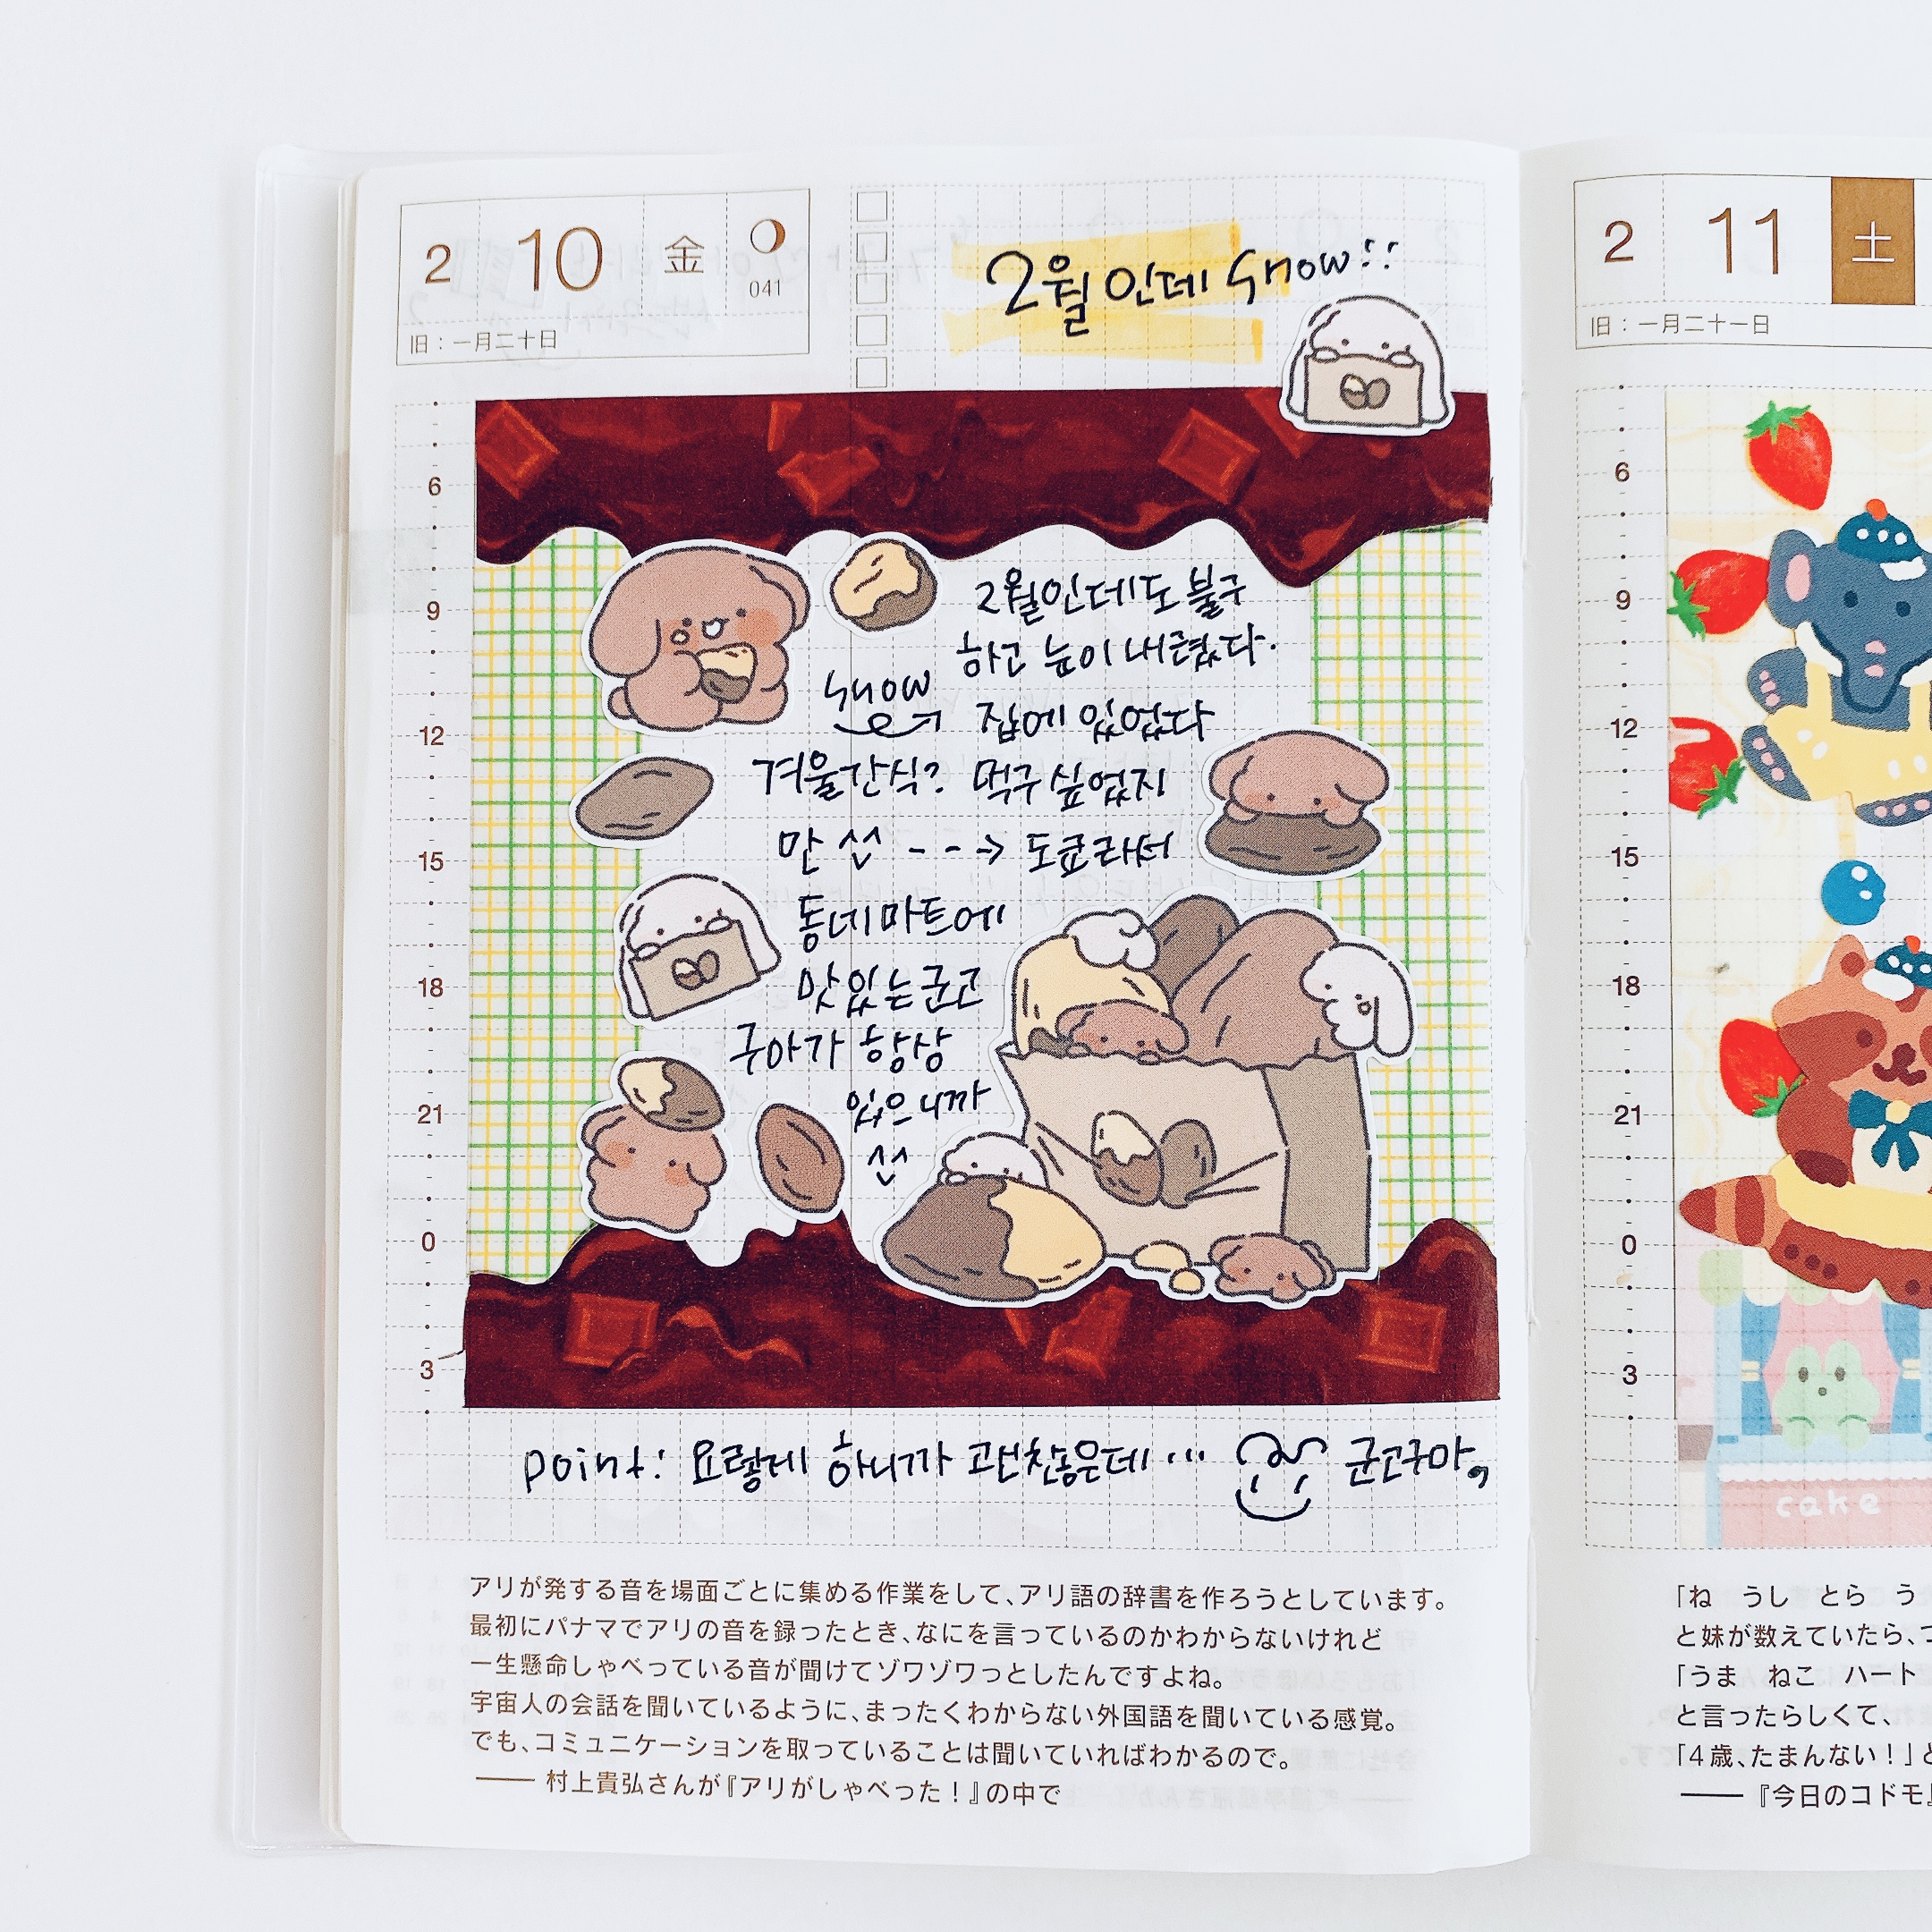 2 10 金 041
旧：一月二十日
2월인데 Snow
6
9
12
15
18
21
0
3
2월인데도 불구
하고 눈이 내렸다.
Snow
집에 있었다
겨울간식? 먹구싶었지
만 ㅅㅅ ---> 도쿄라서
동네마트에
맛있는군고
구마가 항상
있으니까
ㅅㅅ
point: 요렇게 하니까 괜찮은데... 군고구마,
アリが発する音を場面ごとに集める作業をして、アリ語の辞書を作ろうとしています。
最初にパナマでアリの音を録ったとき、なにを言っているのかわからないけれど
一生懸命しゃべっている音が聞けてゾワゾワっとしたんですよね。
宇宙人の会話を聞いているように、まったくわからない外国語を聞いている感覚。
でも、コミュニケーションを取っていることは聞いていればわかるので。
—— 村上貴弘さんが『アリがしゃべった！』の中で
2 11 土
旧：一月二十一日
6
9
12
15
18
21
0
3
cake
「ね うし とら う
と妹が数えていたら、つ
「うま ねこ ハート
と言ったらしくて、
「4歳、たまんない！」と
—— 『今日のコドモ』